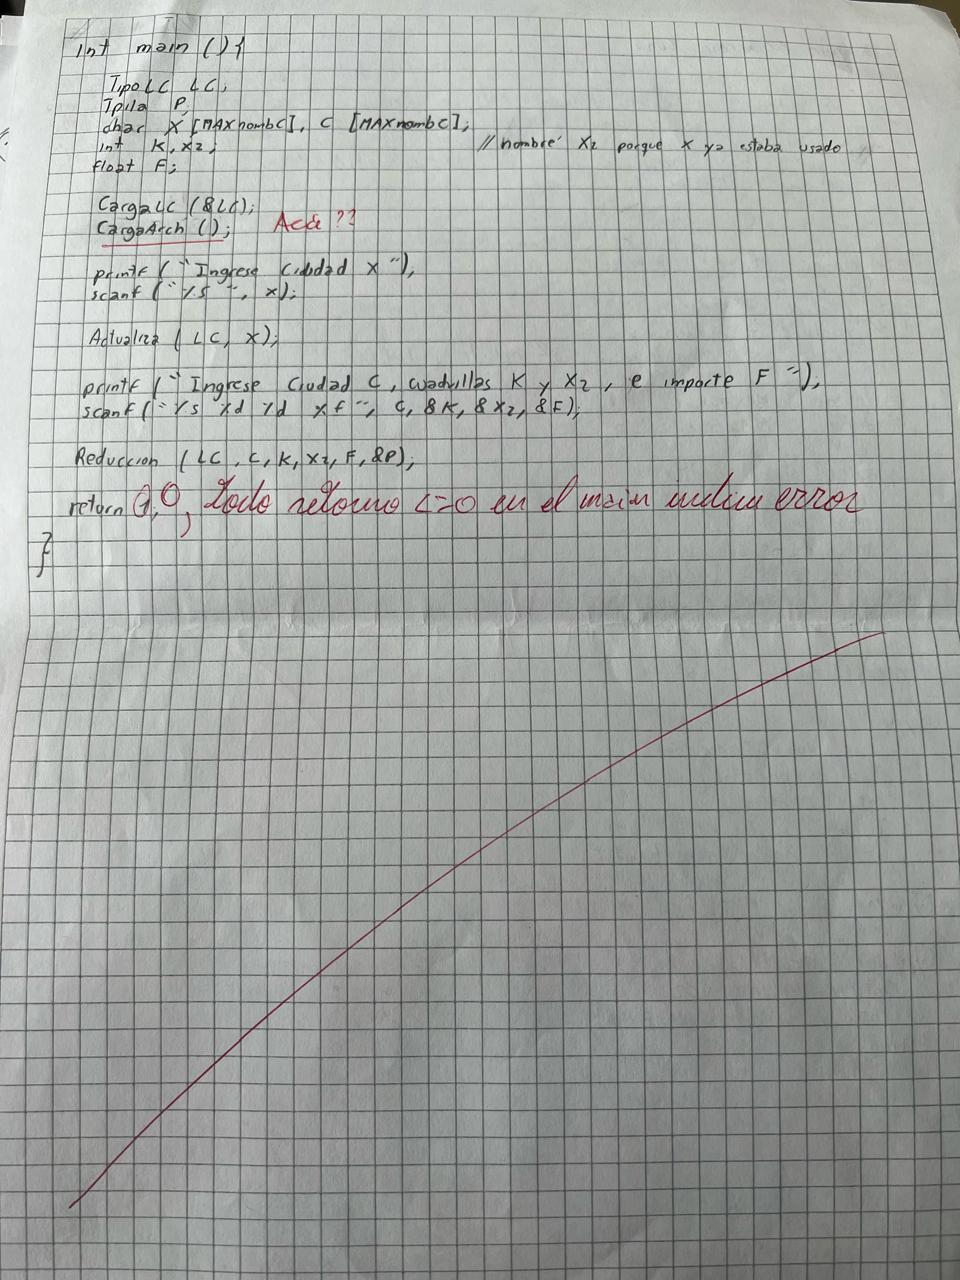 int main (){
TipoLC LC;
Tpila P;
char X [MAXnombC], C [MAXnombC];
int K, X2; // nombré X2 porque X ya estaba usado
float F;
CargaLC (&LC);
CargaArch (); Acá ??
printf ("Ingrese Ciudad X ");
scanf ("%s ", x);
Actualiza (LC, X);
printf ("Ingrese Ciudad C, cuadrillas K y X2, e importe F ");
scanf ("%s %d %d %f ", C, &K, &X2, &F);
Reduccion (LC, C, K, X2, F, &P);
return 0; todo retorno <=0 en el main indica error
}